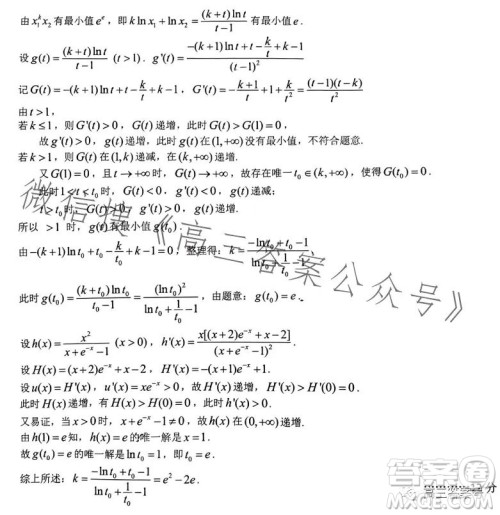 由x₁ᵏx₂有最小值eᵉ，即k ln x₁ + ln x₂ = (k+t)ln t/(t-1) 有最小值e.
设g(t) = (k+t)ln t/(t-1) (t>1). g'(t) = [-(k+1)ln t + t - k/t + k - 1]/(t-1)²
记G(t) = -(k+1)ln t + t - k/t + k - 1, G'(t) = -(k+1)/t + 1 + k/t² = (t-1)(t-k)/t²
由t>1,
若k≤1, 则G'(t)>0, G(t)递增, 此时G(t)>G(1)=0,
故g'(t)>0, g(t)递增, 此时g(t)在(1,+∞)没有最小值, 不符合题意.
若k>1, 则G(t)在(1,k)递减, 在(k,+∞)递增.
又G(1)=0, 且t→+∞时, G(t)→+∞, 故存在唯一t₀∈(k,+∞), 使得G(t₀)=0.
此时1<t<t₀时, G(t)<0, g'(t)<0, g(t)递减;
t>t₀时, G(t)>0, g'(t)>0, g(t)递增.
所以 >1 时, g(t)有最小值g(t₀).
由-(k+1)ln t₀ + t₀ - k/t₀ + k - 1 = 0, 整理得: k = (-ln t₀ + t₀ - 1)/(ln t₀ + 1/t₀ - 1)
此时g(t₀) = (k+t₀)ln t₀/(t₀-1) = (ln t₀)²/(ln t₀ + 1/t₀ - 1), 由题意: g(t₀)=e.
设h(x) = x²/(x+e⁻ˣ-1) (x>0), h'(x) = x[(x+2)e⁻ˣ+x-2]/(x+e⁻ˣ-1)²
设H(x)=(x+2)e⁻ˣ+x-2, H'(x)=-(x+1)e⁻ˣ+1.
设u(x)=H'(x), u'(x)=xe⁻ˣ>0, 故H'(x)递增, H'(x)>H'(0)=0.
此时H(x)递增, 有H(x)>H(0)=0.
又易证, 当x>0时, x+e⁻ˣ-1>0, 故h(x)在(0,+∞)递增.
由h(1)=e知, h(x)=e的唯一解是x=1.
故g(t₀)=e的唯一解是ln t₀=1, 即t₀=e.
综上所述: k = (-ln t₀ + t₀ - 1)/(ln t₀ + 1/t₀ - 1) = e²-2e.
分
微信搜《高三答案公众号》
答案圈